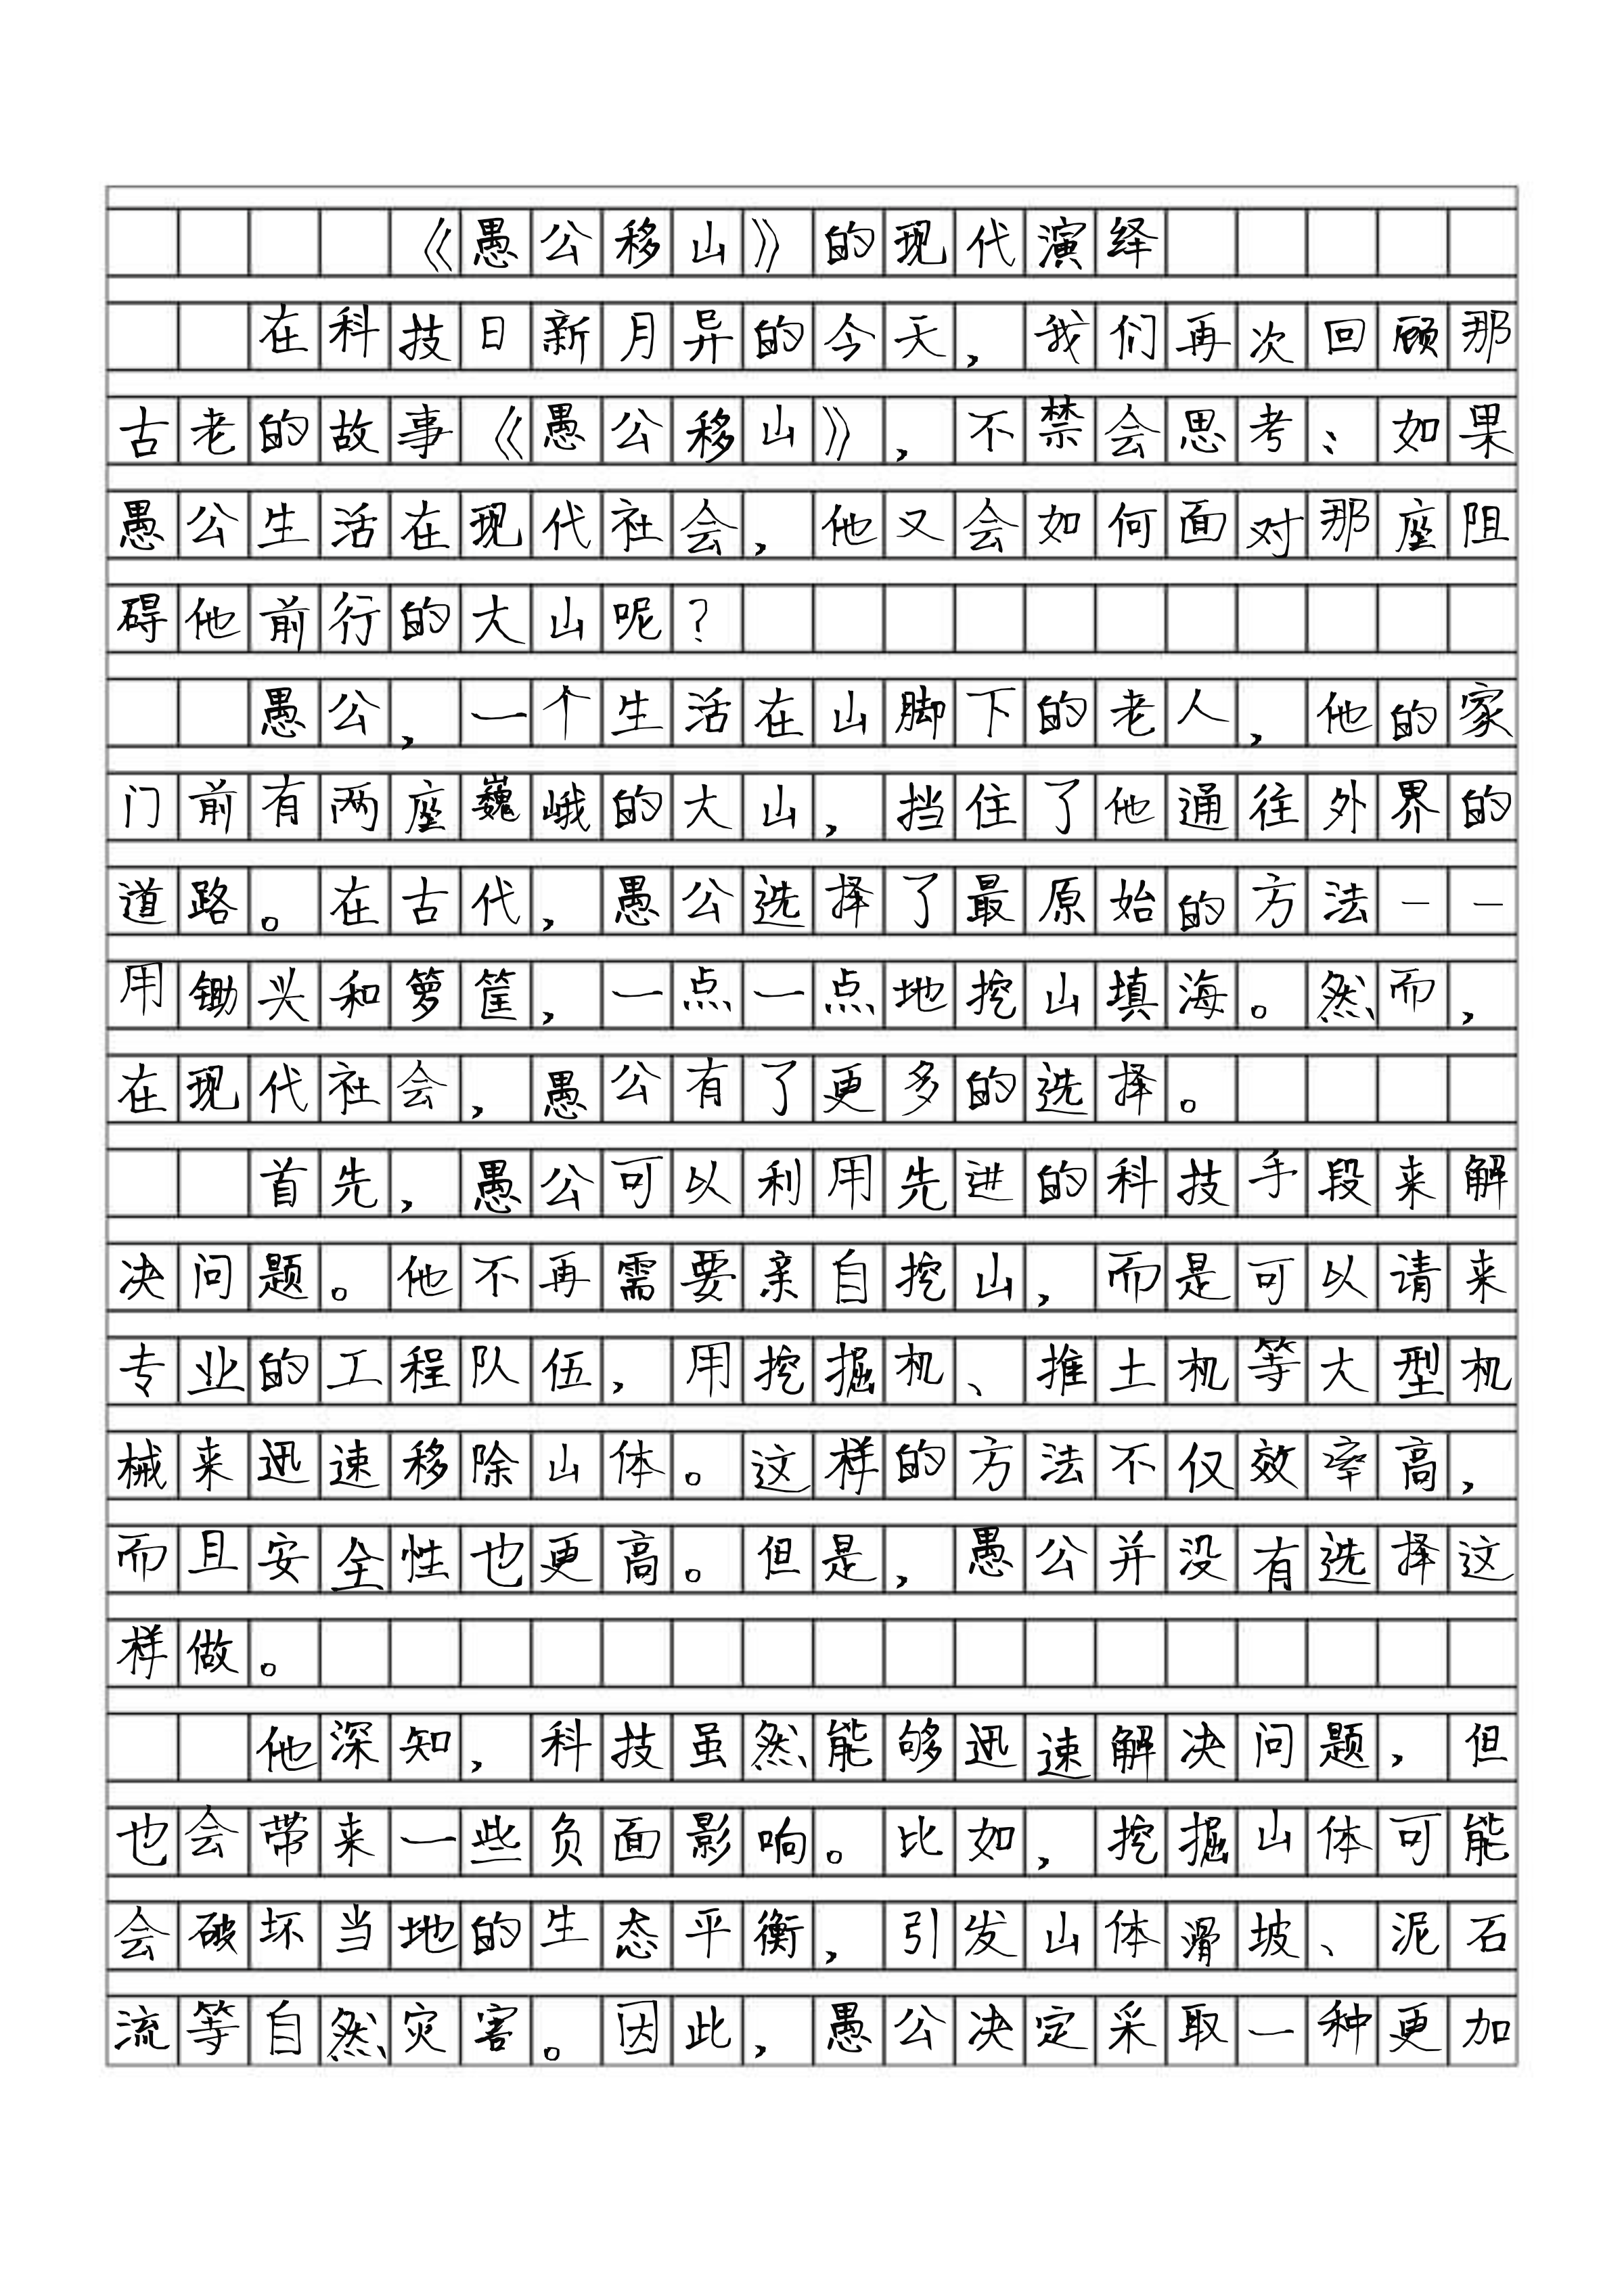 《愚公移山》的现代演绎
在科技日新月异的今天，我们再次回顾那
古老的故事《愚公移山》，不禁会思考：如果
愚公生活在现代社会，他又会如何面对那座阻
碍他前行的大山呢？
愚公，一个生活在山脚下的老人，他的家
门前有两座巍峨的大山，挡住了他通往外界的
道路。在古代，愚公选择了最原始的方法——
用锄头和箩筐，一点一点地挖山填海。然而，
在现代社会，愚公有了更多的选择。
首先，愚公可以利用先进的科技手段来解
决问题。他不再需要亲自挖山，而是可以请来
专业的工程队伍，用挖掘机、推土机等大型机
械来迅速移除山体。这样的方法不仅效率高，
而且安全性也更高。但是，愚公并没有选择这
样做。
他深知，科技虽然能够迅速解决问题，但
也会带来一些负面影响。比如，挖掘山体可能
会破坏当地的生态平衡，引发山体滑坡、泥石
流等自然灾害。因此，愚公决定采取一种更加